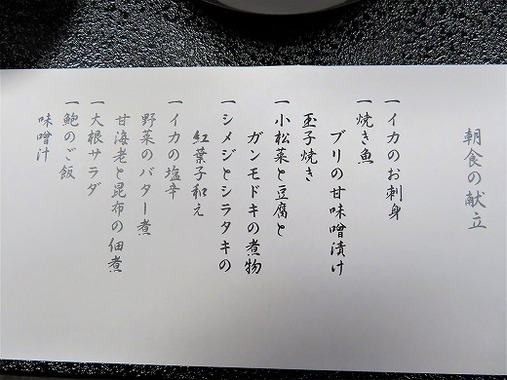 朝食の献立
一イカのお刺身
一焼き魚
ブリの甘味噌漬け
玉子焼き
一小松菜と豆腐と
ガンモドキの煮物
一シメジとシラタキの
紅葉子和え
一イカの塩辛
野菜のバター煮
甘海老と昆布の佃煮
一大根サラダ
一鮑のご飯
味噌汁